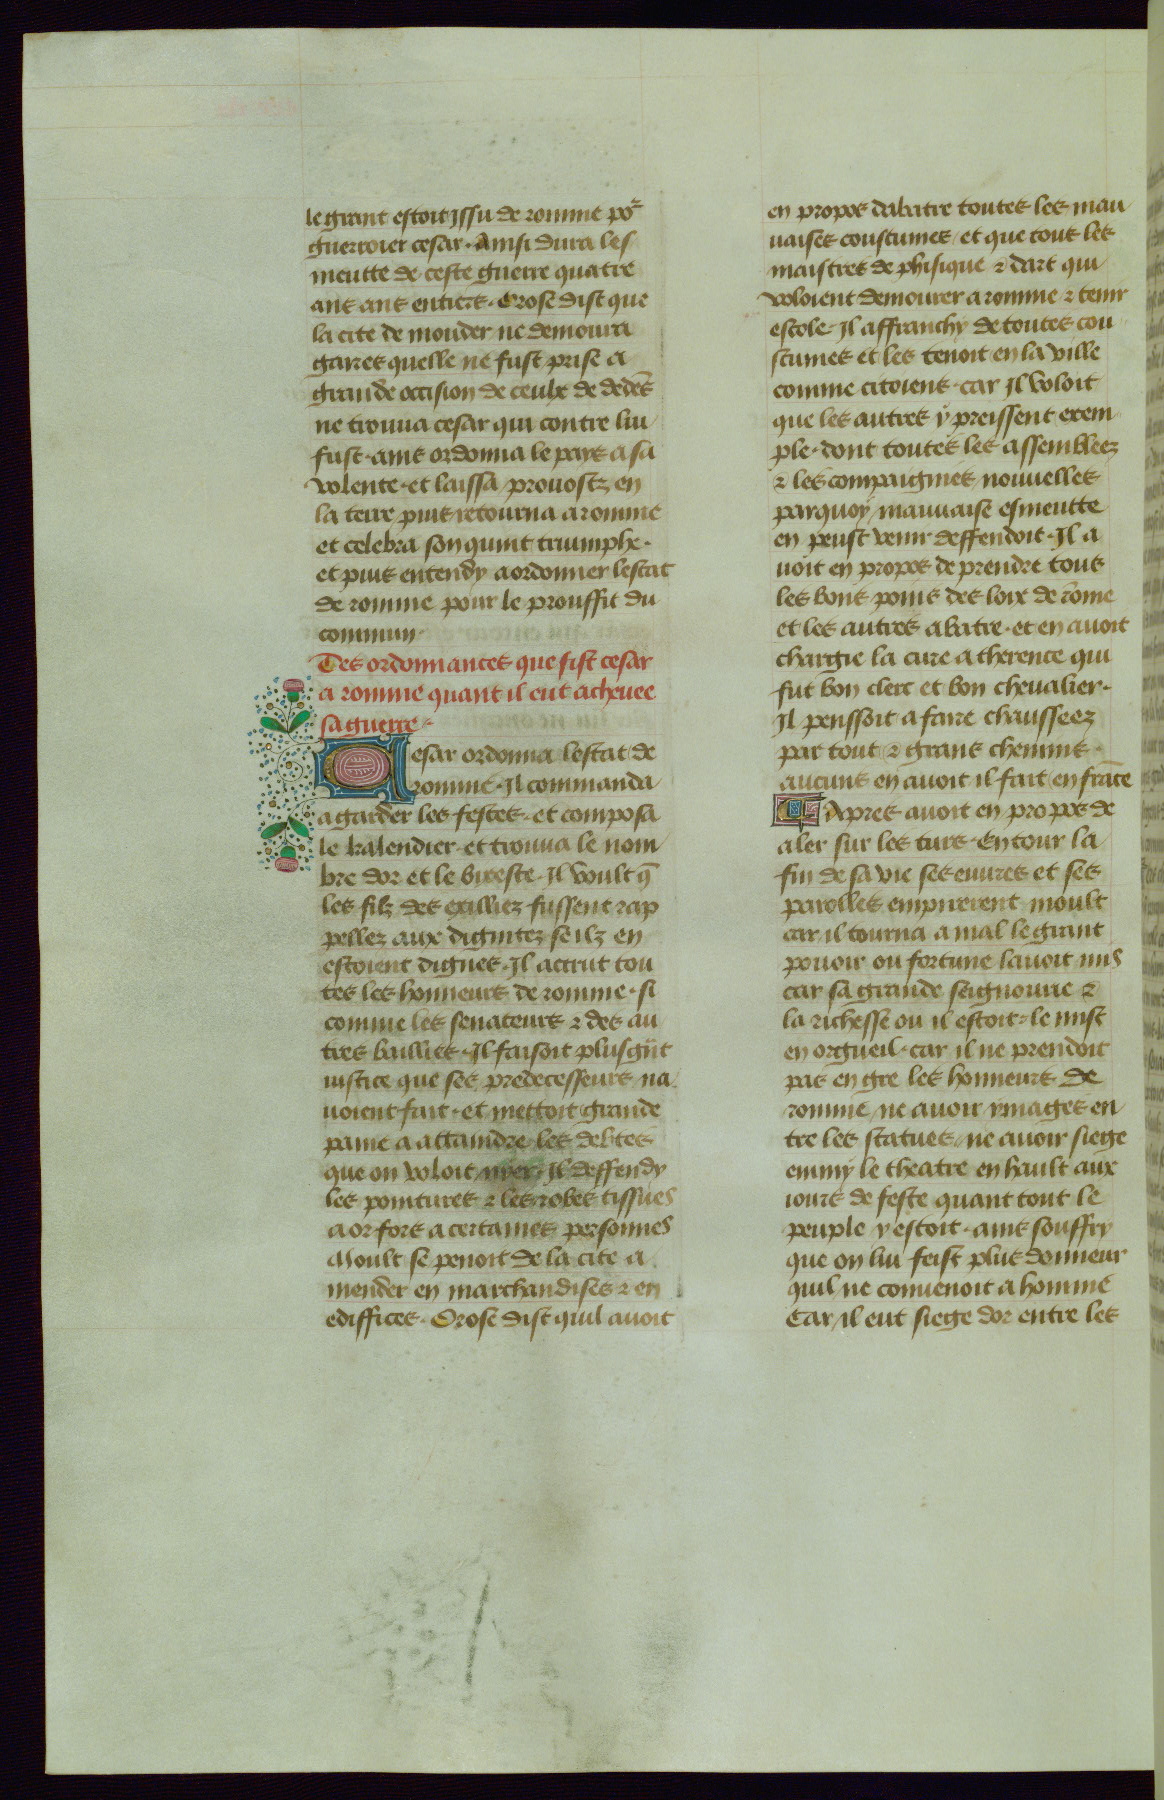 le grant estoit Jssu de romme poᷣ
guerroier cesar. Ainsi dura les
meutte de ceste guerre quatre
ans ans entiers. Orose dist que
la cite de monder ne demoura
gaires quelle ne fust prise a
grande occision de ceulx de dedēs
ne trouua cesar qui contre luy
fust. ains ordonna le pays a sa
volente. et laissa prouostz en
la terre puis retourna a romme
et celebra son quint triumphe.
et puis entendy a ordonner lestat
de romme pour le prouffit du
commun.
Des ordonnances que fist cesar
a romme quant il eut acheuee
sa guerre.
Cesar ordonna lestat de
romme. Il commanda
a garder les festes. et composa
le kalendier. et trouua le nom
bre dor et le bixeste. Il voult q̄
les filz des exilliez fussent rap
pellez aux dignitez se ilz en
estoient dignes. Il accrut tou
tes les honneurs de romme. si
comme les senateurs ⁊ des au
tres baillies. Il faisoit plus gñt
iustice que ses predecesseurs na
uoient fait. et mettoit grande
paine a attaindre les debtes
que on voloit nyer. Il deffendy
les pointures ⁊ les robes tissues
a or fors a certaines personnes
Moult se penoit de la cite a
mender en marchandises ⁊ en
ediffices. Orose dist quil auoit
en propos dabatre toutes les mau
uaises coustumes / et que tous les
maistres de phisique ⁊ dart qui
voloient demourer a romme ⁊ tenir
escole. Il affranchy de toutes cou
stumes et les tenoit en la ville
comme citoiens. car Il voloit
que les autres y preissent exem
ple. dont toutes les assembleez
⁊ les compaignies nouuelles
parquoy mauuaise esmeutte
en peust venir deffendoit. Il a
uoit en propos de prendre tous
les bons poins des loix de rōme
et les autres abatre. et en auoit
chargie la cure a therence qui
fut bon clerc et bon cheualier.
Il penssoit a faire chausseez
par tout ⁊ grans chemins.
aucuns en auoit il fait en frāce
Apres auoit en propos de
aler sur les turs. Entour la
fin de sa vie ses euures et ses
parolles empirerent moult
car il tourna a mal le grant
pouoir ou fortune lauoit mis
car sa grande seignourie ⁊
la richesse ou il estoit le mist
en orgueil. car il ne prendoit
pas en gre les honneurs de
romme / ne auoir ymages en
tre les statues / ne auoir siege
emmy le theatre en hault aux
iours de feste quant tout le
peuple y estoit. ains souffry
que on luy feist plus donneur
quil ne conuenoit a homme
Car il eut siege dor entre les